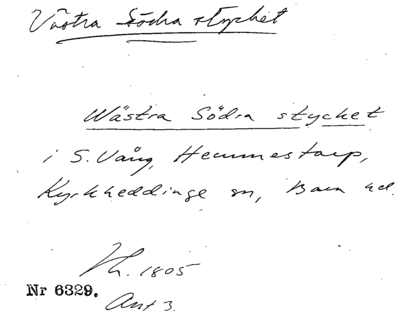 Västra Södra stycket
Wästra Södra stycket
i S. Vång, Hemmestorp,
Kyrkheddinge sn, Bara hd.
Lh. 1805
Nr 6329.
Avt 3.